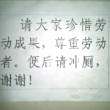 请大家珍惜劳
动成果，尊重劳动
者。便后请冲厕，
谢谢！